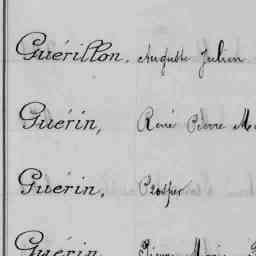 Guérillon, Auguste Julien
Guérin, René Pierre
Guérin, Prosper
Guérin Pierre Marie